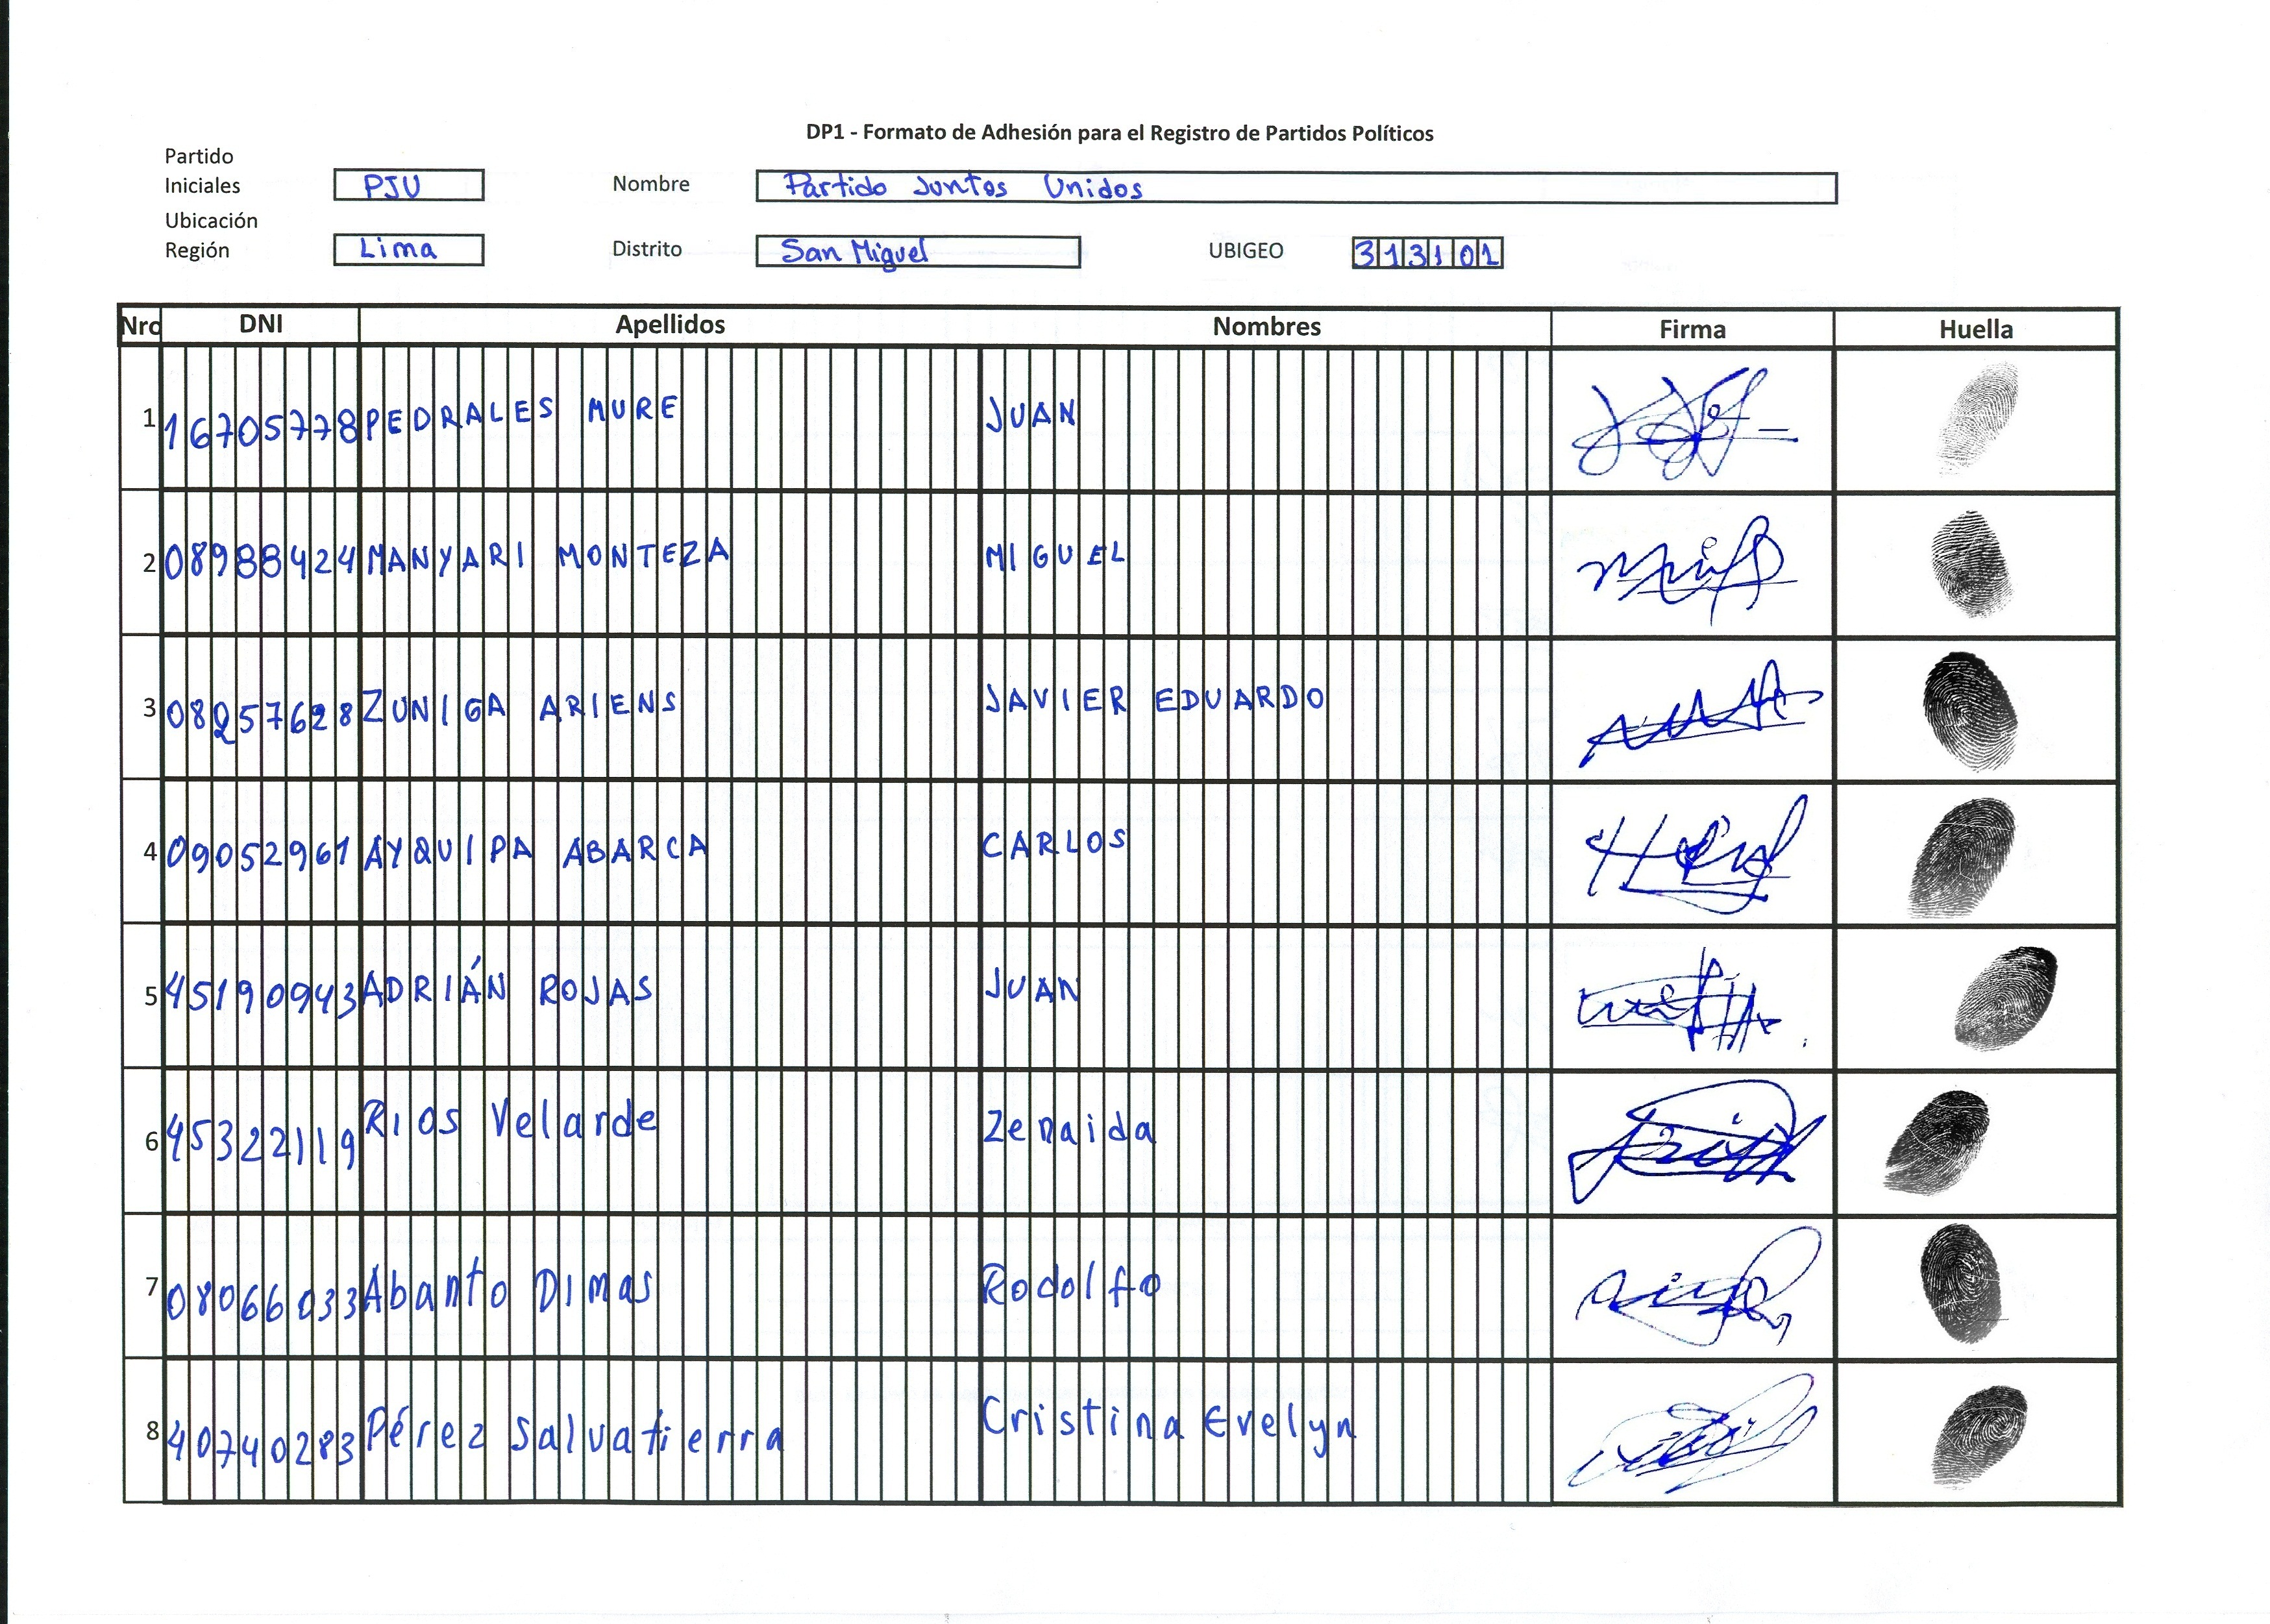 DP1 - Formato de Adhesión para el Registro de Partidos Políticos
Partido
Iniciales PJU Nombre Partido Juntos Unidos
Ubicación
Región Lima Distrito San Miguel UBIGEO 313101
Nro DNI Apellidos Nombres Firma Huella
1 16705778 PEDRALES MURE JUAN
2 08988424 MANYARI MONTEZA MIGUEL
3 08257628 ZUNIGA ARIENS JAVIER EDUARDO
4 09052961 AYQUIPA ABARCA CARLOS
5 45190943 ADRIÁN ROJAS JUAN
6 45322119 Rios Velarde Zenaida
7 08066033 Abanto Dimas Rodolfo
8 40740283 Pérez Salvatierra Cristina Evelyn